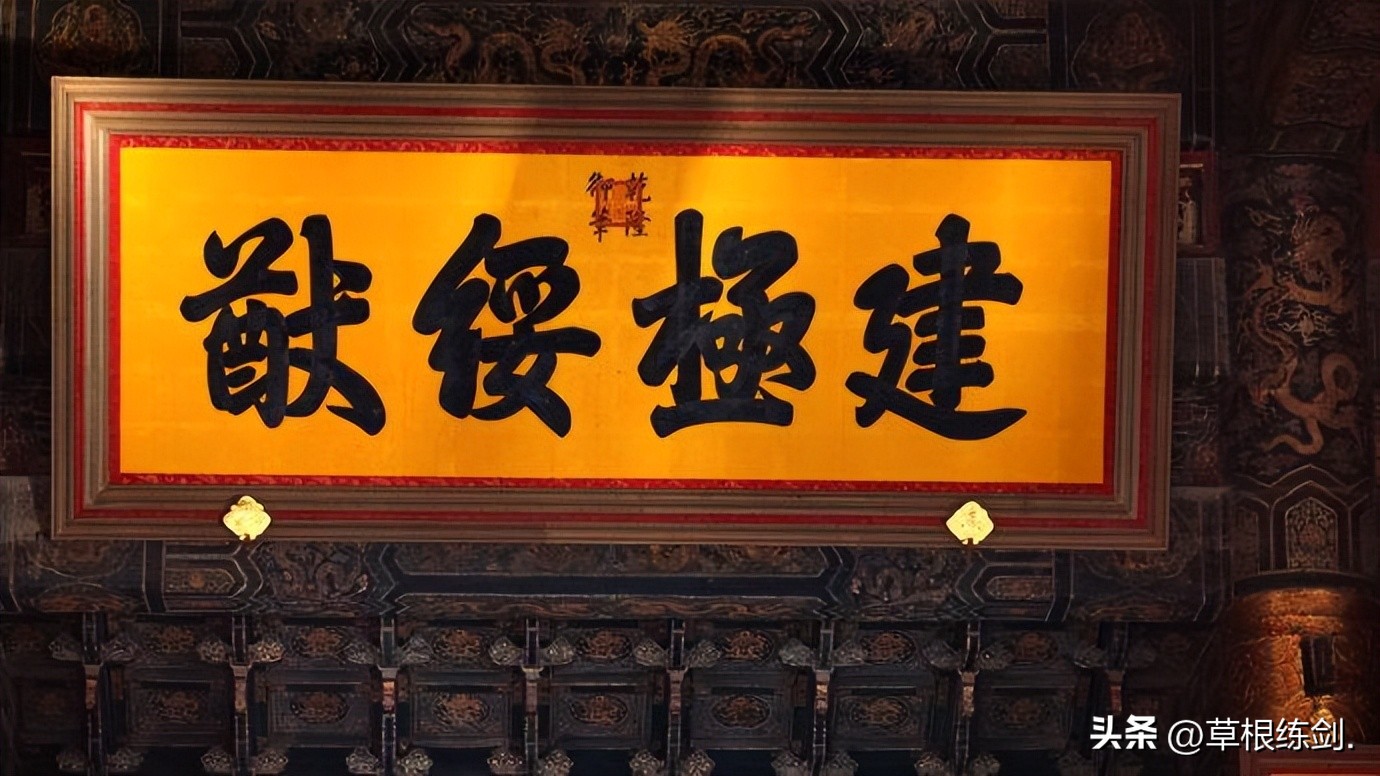 乾隆
御筆
建極綏猷
头条 @草根练剑.